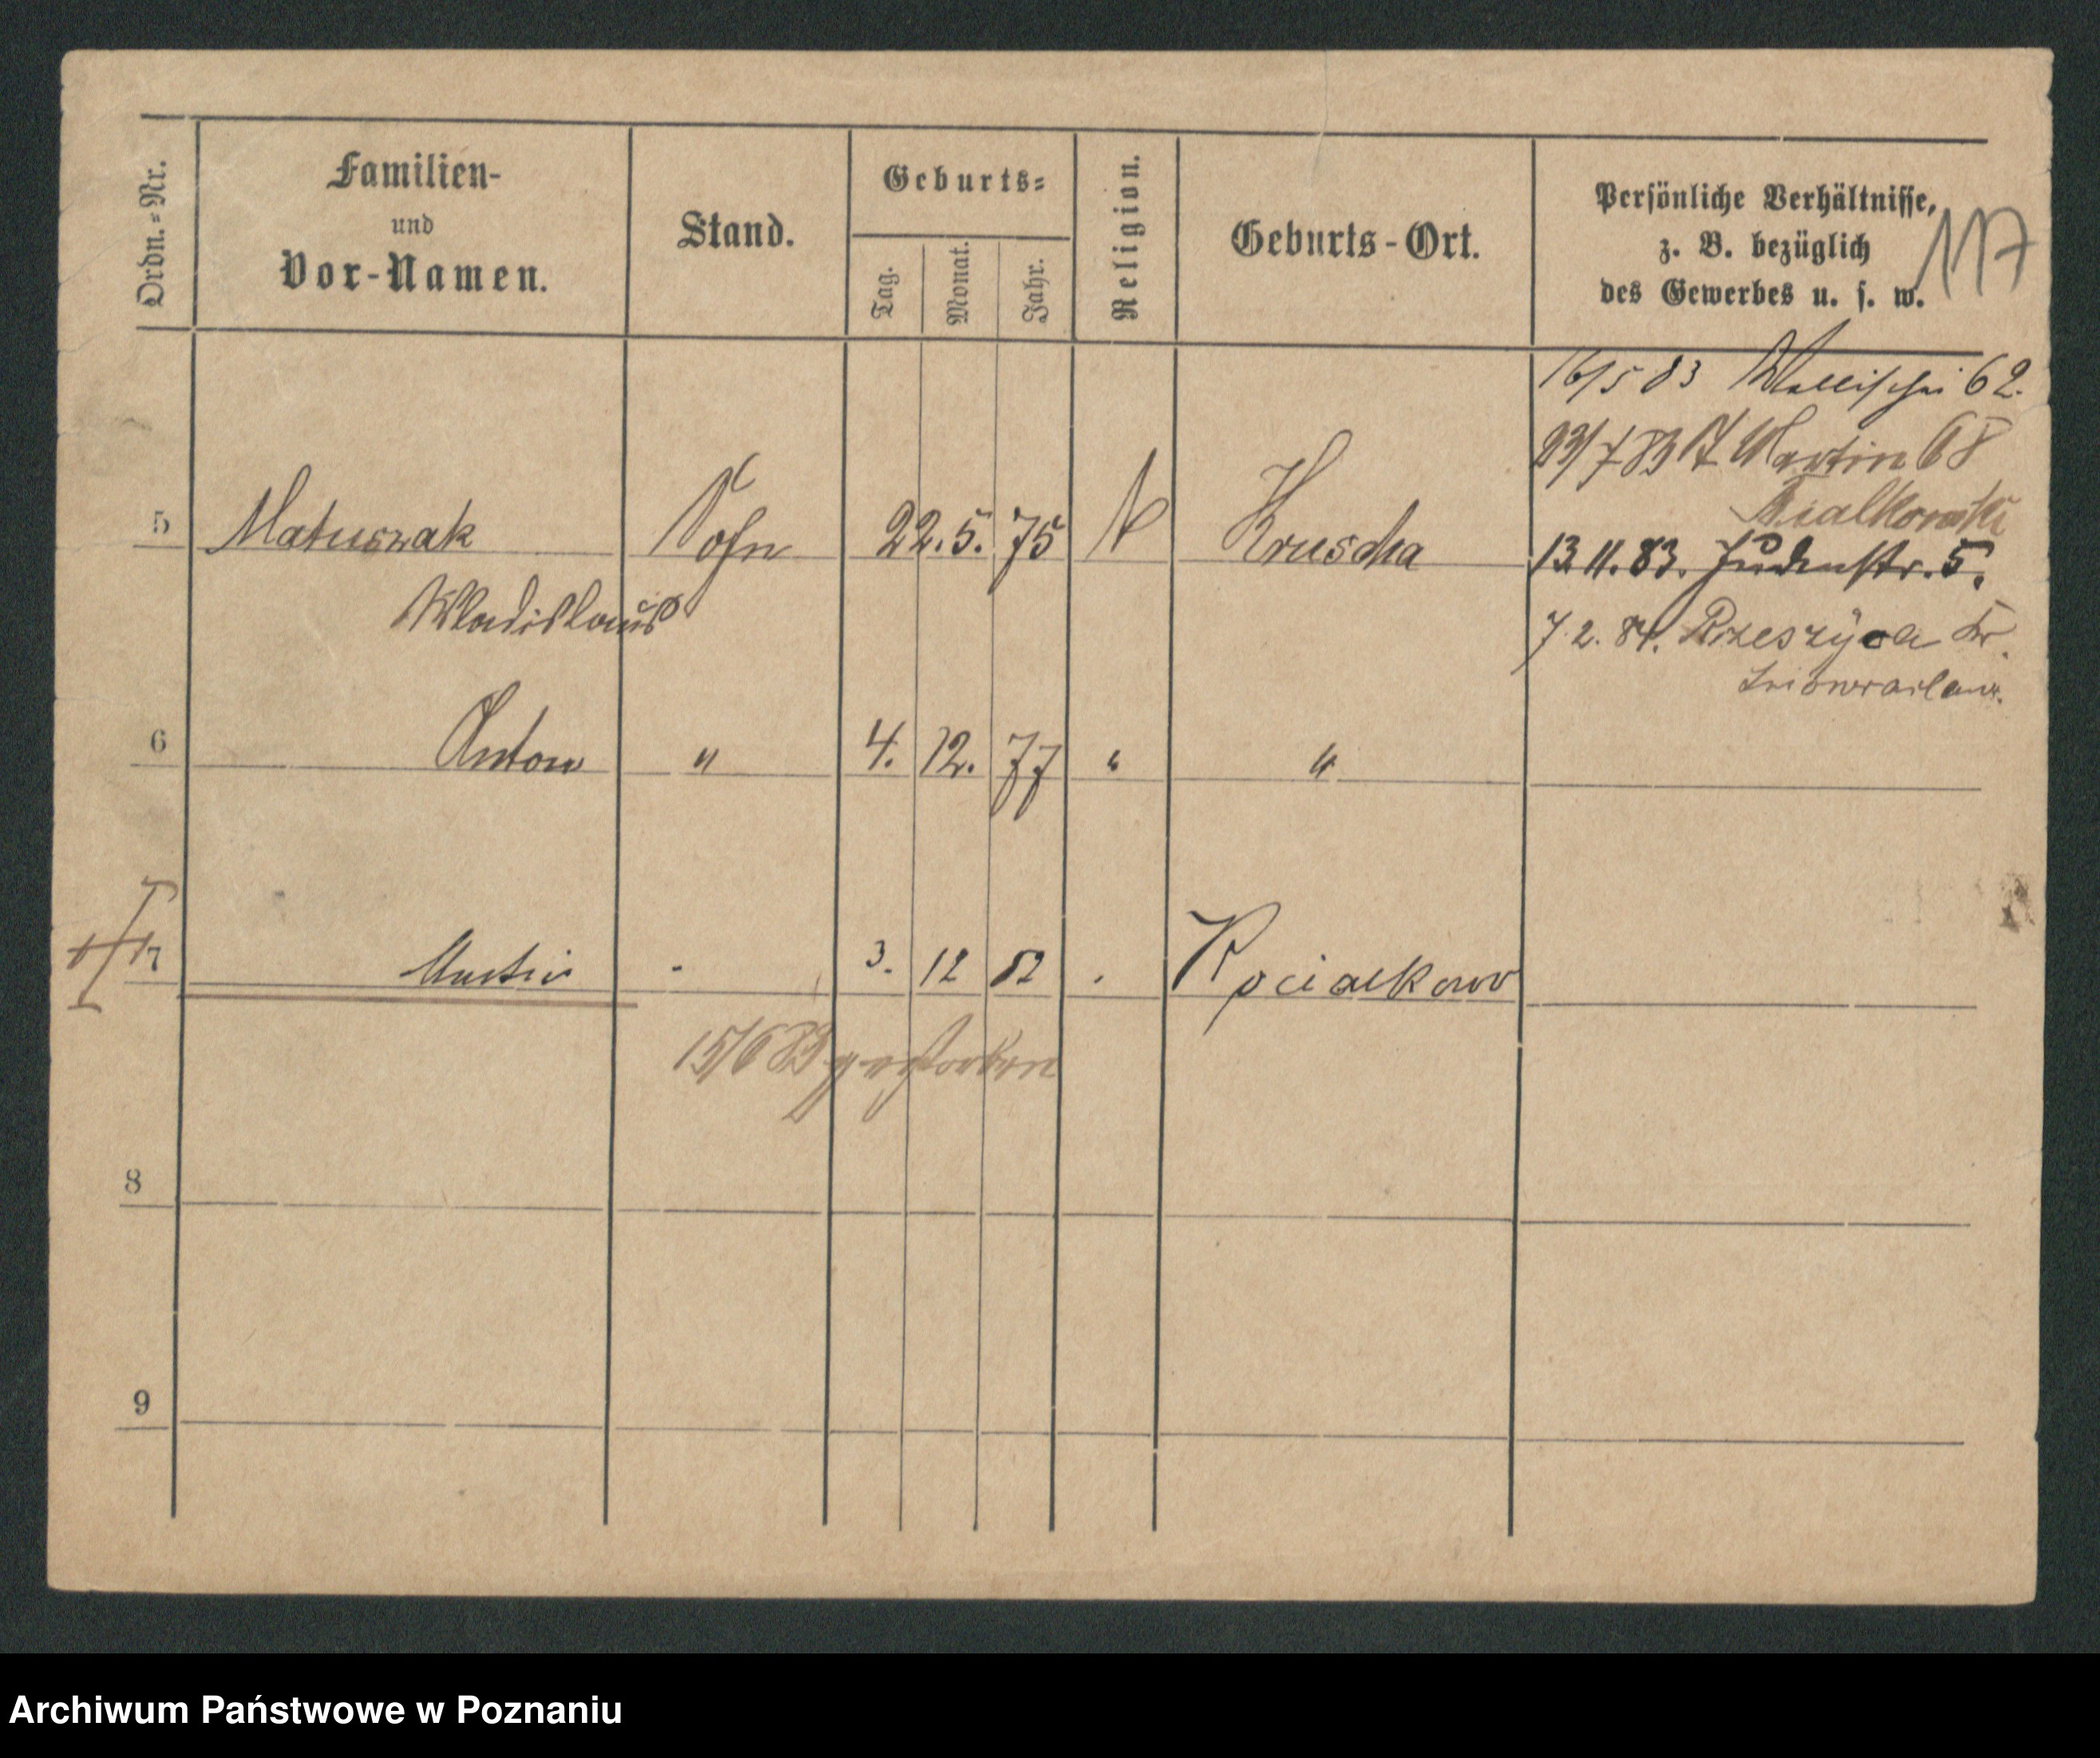 Ordn.-Nr.
Familien-
und
Vor-Namen.
Stand.
Geburts-
Tag.
Monat.
Jahr.
Religion.
Geburts-Ort.
Persönliche Verhältnisse,
z. B. bezüglich
des Gewerbes u. s. w.
117
16/5 83 Wallischei 62.
23/7 83 St Martin 68
Bialkowski
5 Matuszak Sohn 22. 5. 75 Kruscha
13. 11. 83. Judenstr. 5.
Wladislaus
7. 2. 84. Kr.
Inowrazlaw.
6 Anton " 4. 12. 77 " "
7 Martin 3. 12 82
15/6 83 gestorben
8
9
Archiwum Państwowe w Poznaniu